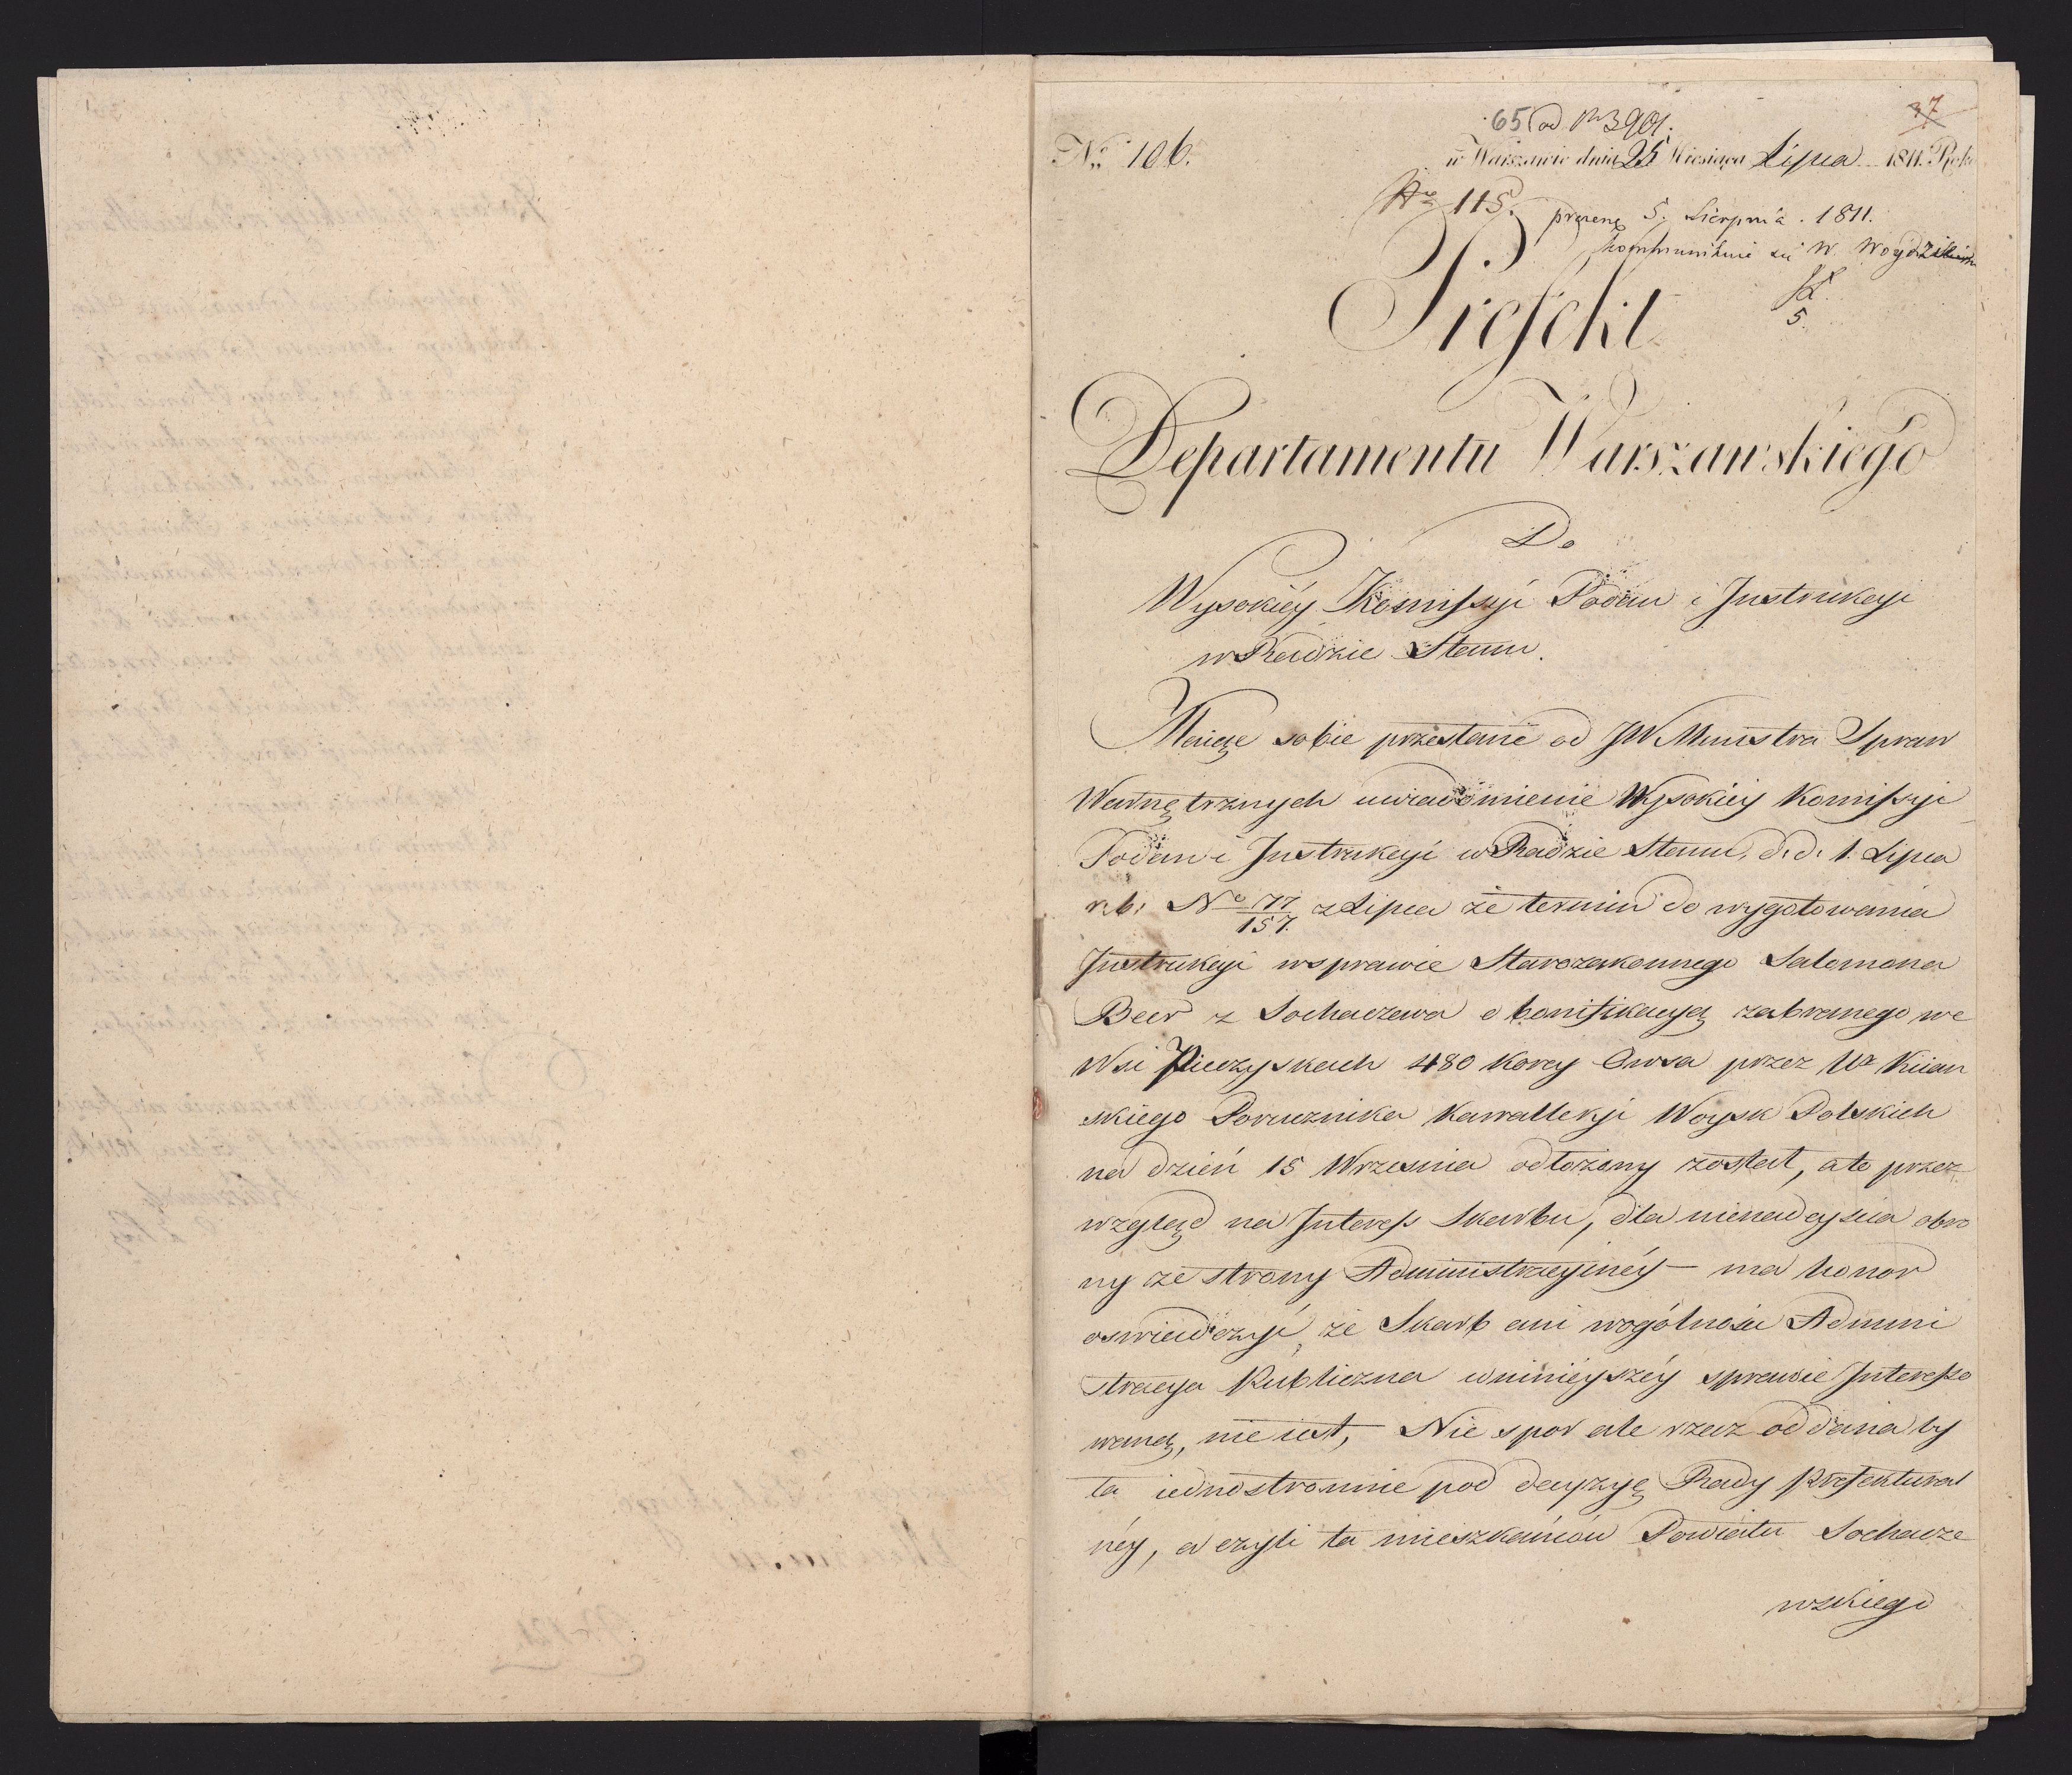 37
65 ad Nr 3901.
No 106.
w Warszawie dnia 25 Miesiąca Lipca 1811. Roku
No 115.
prezent. 5. Sierpnia. 1811.
kommunikuie się W.
5.
Prefekt
Departamentu Warszawskiego
Do
Wysokiéy Komissyi Podań i Instrukcyi
w Radzie Stanu.
Maiąc sobie przesłane od JW Ministra Spraw
Wewnętrznych uwiadomienie Wysokiey Komissyi
Podań i Instrukcyi w Radzie Stanu, d. d. 1. Lipca
r. b. No 177/157. z Lipca że termin do wygotowania
Instrukcyi w sprawie Starozakonnego Salomona
Beer z Sochaczewa o bonifikacyą zabranego we
Wsi Pieczyskach 480 Korcy Owsa przez Wo Kiian
skiego Porucznika Kawalleryi Woysk Polskich
na dzień 15 Wrzesnia odłożony został, a to przez
wzgląd na Interess Skarbu, dla nienadeyścia obro
ny ze strony Administracyinéy — ma honor
oswiadczyć, że Skarb ani w ogólności Admini
stracya Publiczna w niniéyszéy sprawie Interesso
waną, nie iest, — Nie spor ale rzecz oddana by
ła iednostronnie pod decyzyę Rady Prefektural
néy, a czyli ta mieszkańców Powiatu Sochacze
wskiego